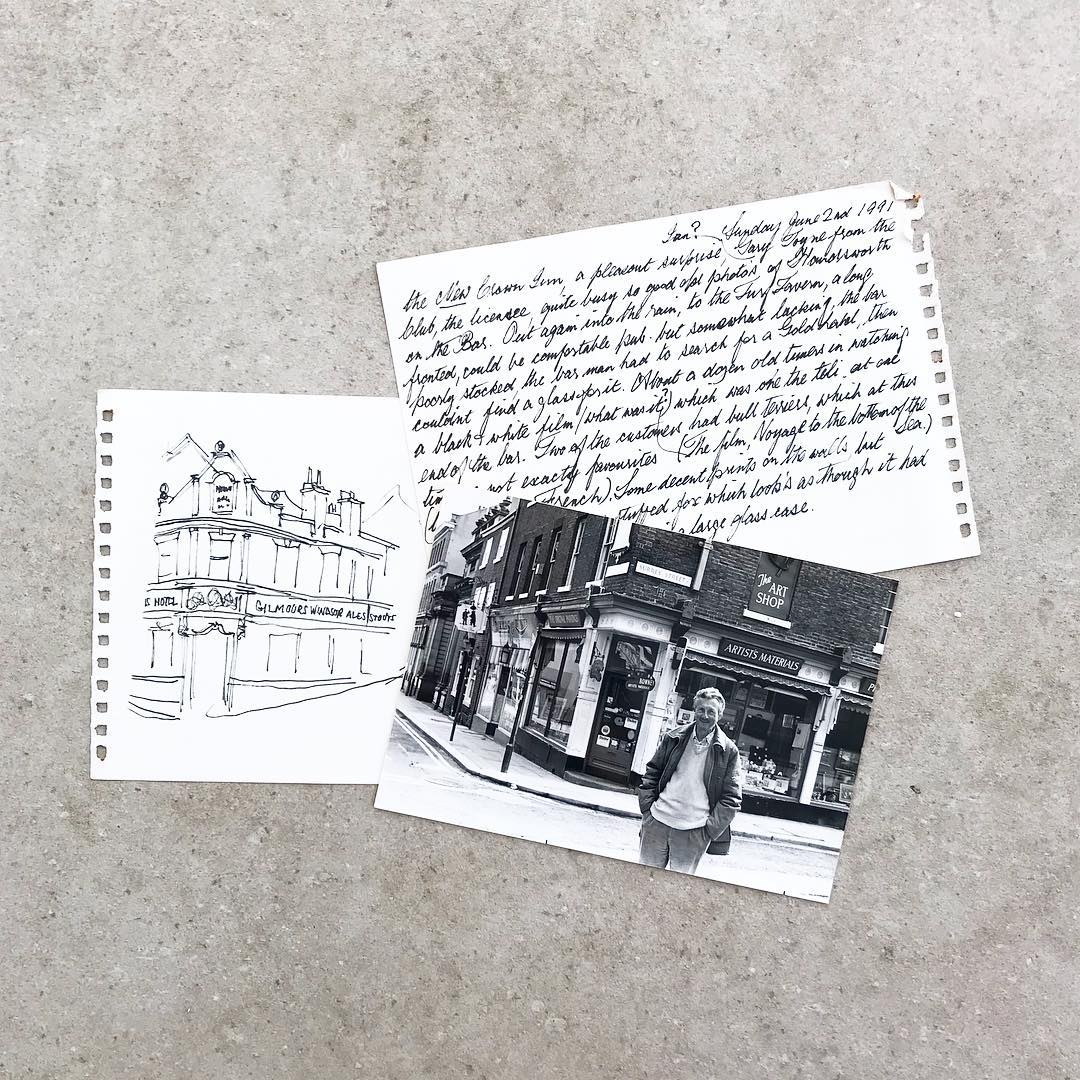 Sunday June 2nd 1991
the New Crown Inn, a pleasant surprise, Gary Toyne from the
Club, the licensee quite busy so good ops photos of
on the Bar. Out again into the rain, to the Turf Tavern, a long
fronted, could be comfortable pub. but somewhat lacking, the bar
poorly stocked, the bar man had to search for a Gold label, then
couldnt find a glass for it. About a dozen old timers in watching
a black & white film (what was it) which was one the teli. at one
end of the bar. Two of the customers had bull terriers, which at this
not exactly favourites (The film, Voyage to the bottom of the
French). Some decent prints on the walls but Sea.)
stuffed fox which look's as though it had
a large glass case.
HOTEL
GILMOORS WINDSOR ALES STOUTS
SURREY STREET
The
ART
SHOP
ARTISTS MATERIALS